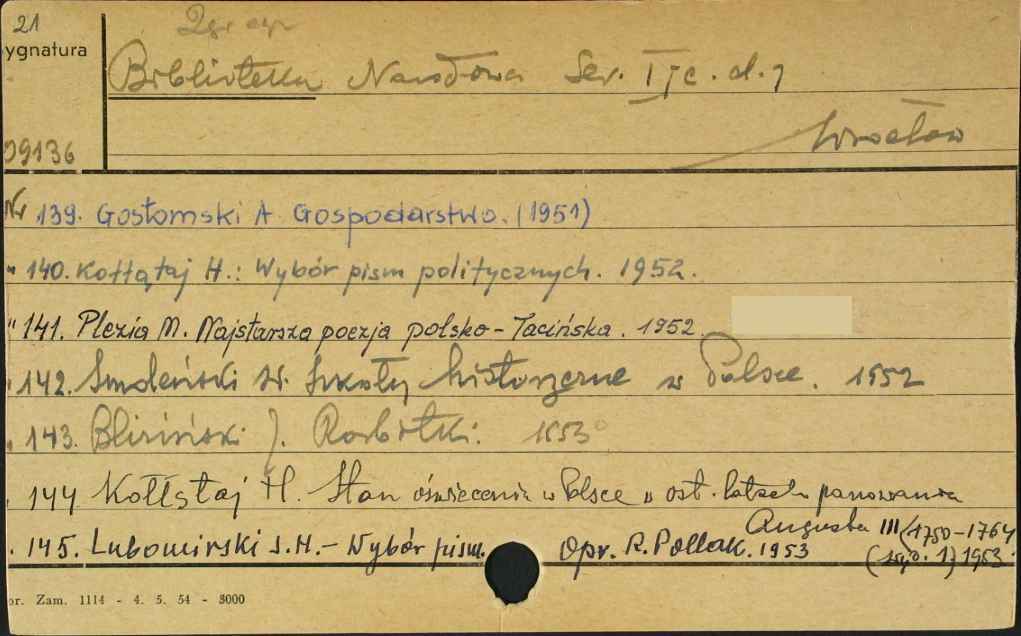 21
ygnatura
Biblioteka Narodowa Ser. I c. d. 7
Wrocław
09136
Nr 139. Gostomski A Gospodarstwo. (1951)
" 140. Kołłątaj H.: Wybór pism politycznych. 1952.
" 141. Plezia M. Najstarsza poezja polsko-łacińska. 1952.
" 142. Smoleński W. Szkoły historyczne w Polsce. 1952
" 143. Bliziński J. Rozbitki. 1953
" 144 Kołłątaj H. Stan oświecenia w Polsce w ost. latach panowania
Augusta III (1750-1764
. 145. Lubomirski S.H. - Wybór pism. Opr. R. Pollak. 1953
(wyd. 1) 1953
or. Zam. 1114 - 4. 5. 54 - 3000